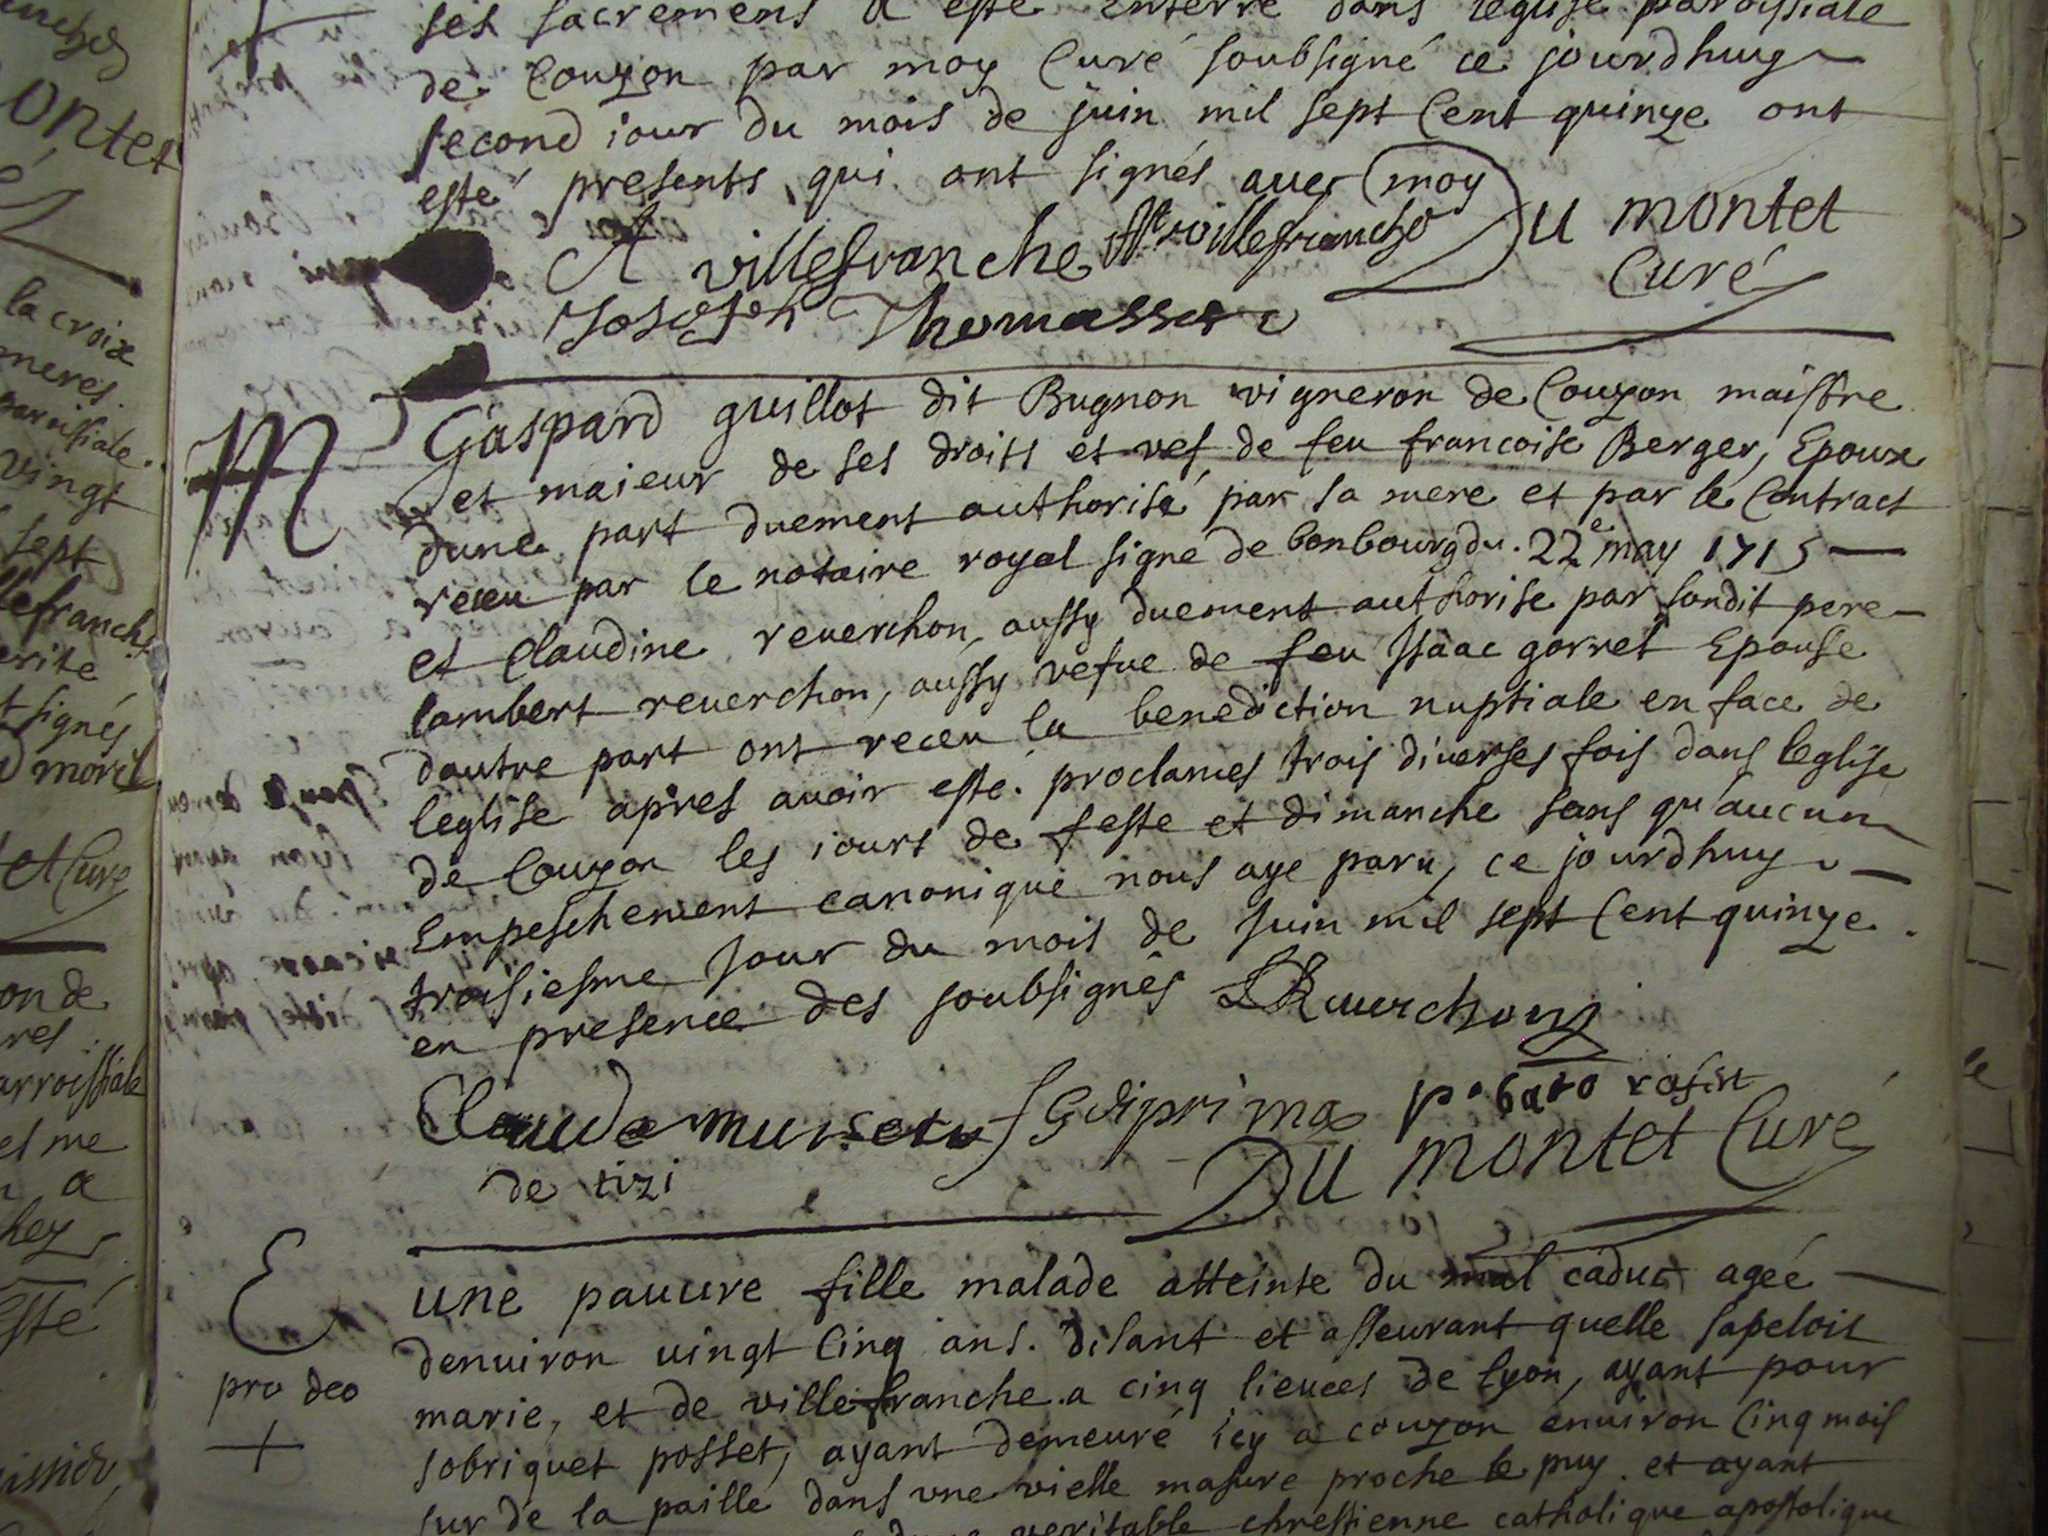 ses sacremens a esté enterré dans leglise paroissiale
de Couzon par moy Curé soubsigné ce jourdhuy
second iour du mois de juin mil sept Cent quinze ont
esté presents qui ont signés avec moy
A villefranche villefranche Du montet
Curé
Joseph Thomasset
M
Gaspard guillot dit Bugnon vigneron de Couzon maistre
et maieur de ses droits et vef de feu francoise Berger, Epoux
dune part duement authorisé par sa mere et par le Contract
receu par le notaire royal signé de bonbourg du 22e may 1715
et Claudine reuerchon, aussy duement authorise par sondit pere
lambert reuerchon, aussy vefue de feu Isaac gorret Epouse
dautre part ont receu la benediction nuptiale en face de
leglise apres auoir esté proclamés trois diuerses fois dans leglise
de Couzon les iours de feste et dimanche sans qu'aucun
Empeschement canonique nous aye paru, ce jourdhuy
troisiesme Jour du mois de Juin mil sept Cent quinze.
en presence des soubsignés Reuerchon
Claude
de tizi
Du montet Curé
E
pro deo
+
une pauure fille malade atteinte du mal caduc agée
denuiron uingt Cinq ans. disant et asseurant quelle sapeloit
marie, et de villefranche a cinq lieuees de lyon, ayant pour
sobriquet posset, ayant demeuré icy a couzon enuiron Cinq mois
sur de la paille dans vne vielle masure proche le puy. et ayant
veritable chrestienne catholique apostolique
la croix
meres.
paroissiale.
vingt
sept
signés
morel